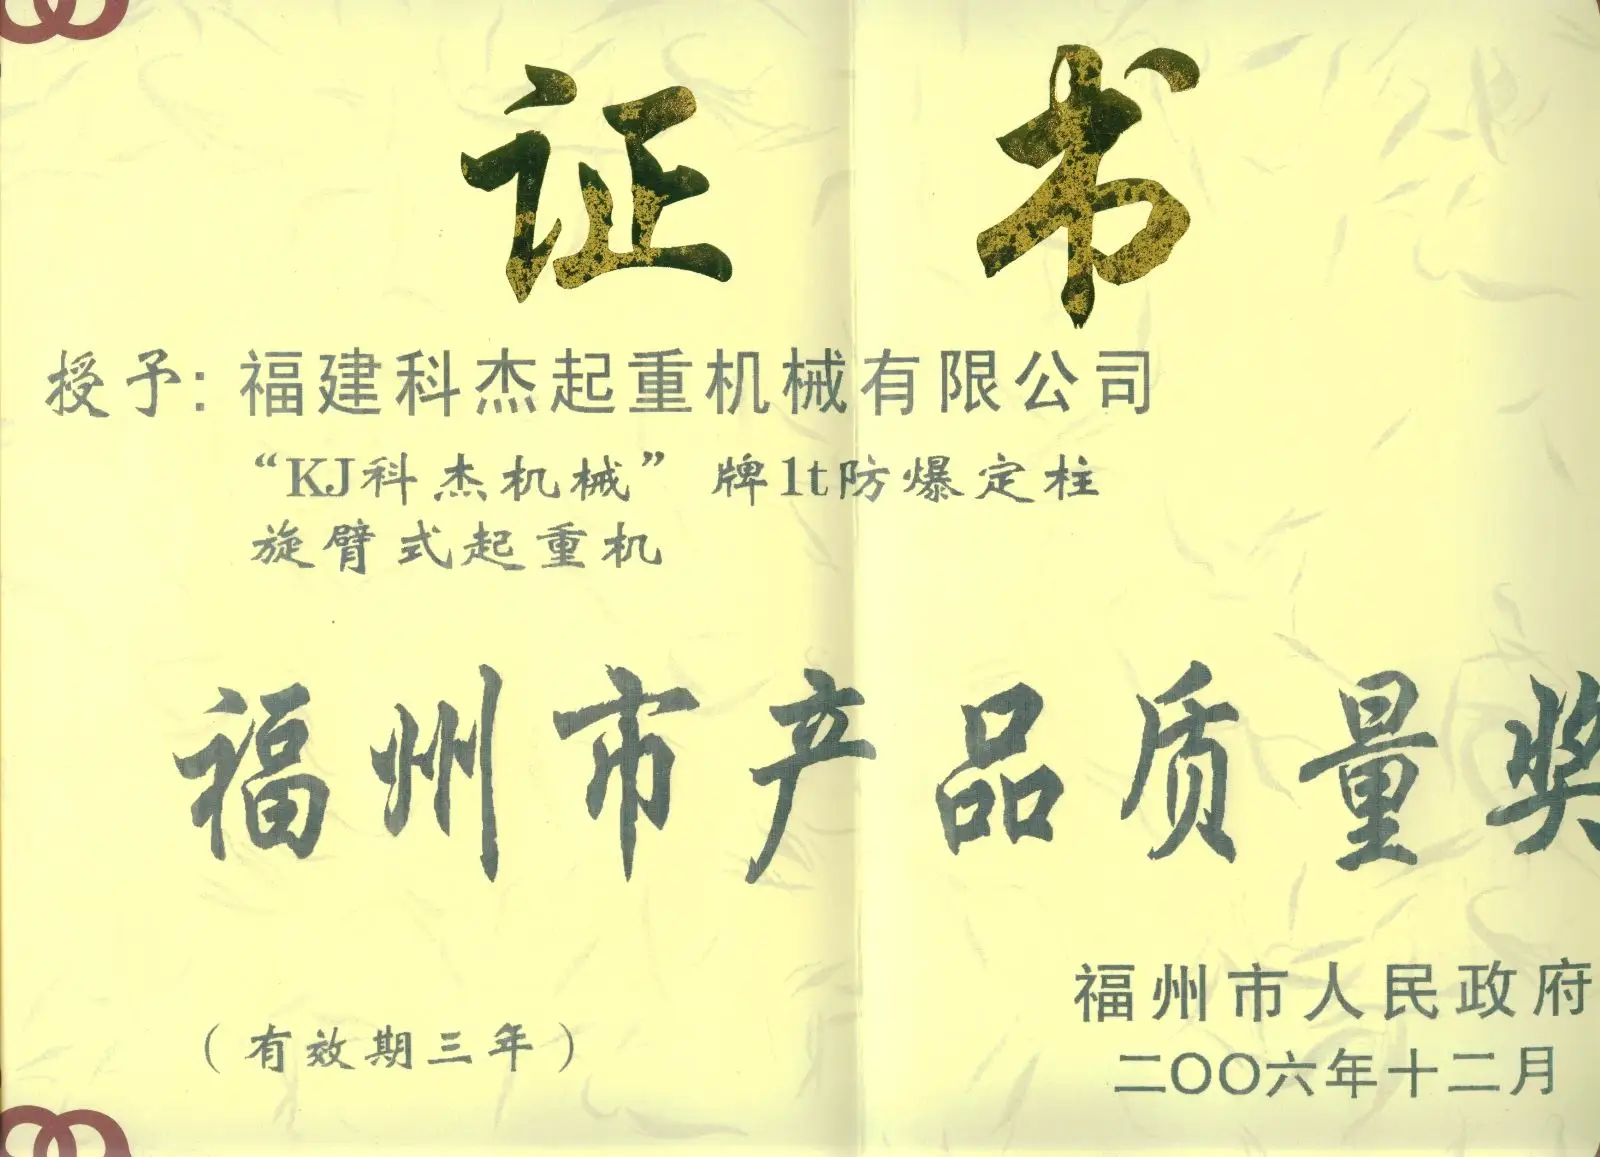 证书
授予：福建科杰起重机械有限公司
“KJ科杰机械”牌1t防爆定柱
旋臂式起重机
福州市产品质量奖
福州市人民政府
（有效期三年）
二〇〇六年十二月